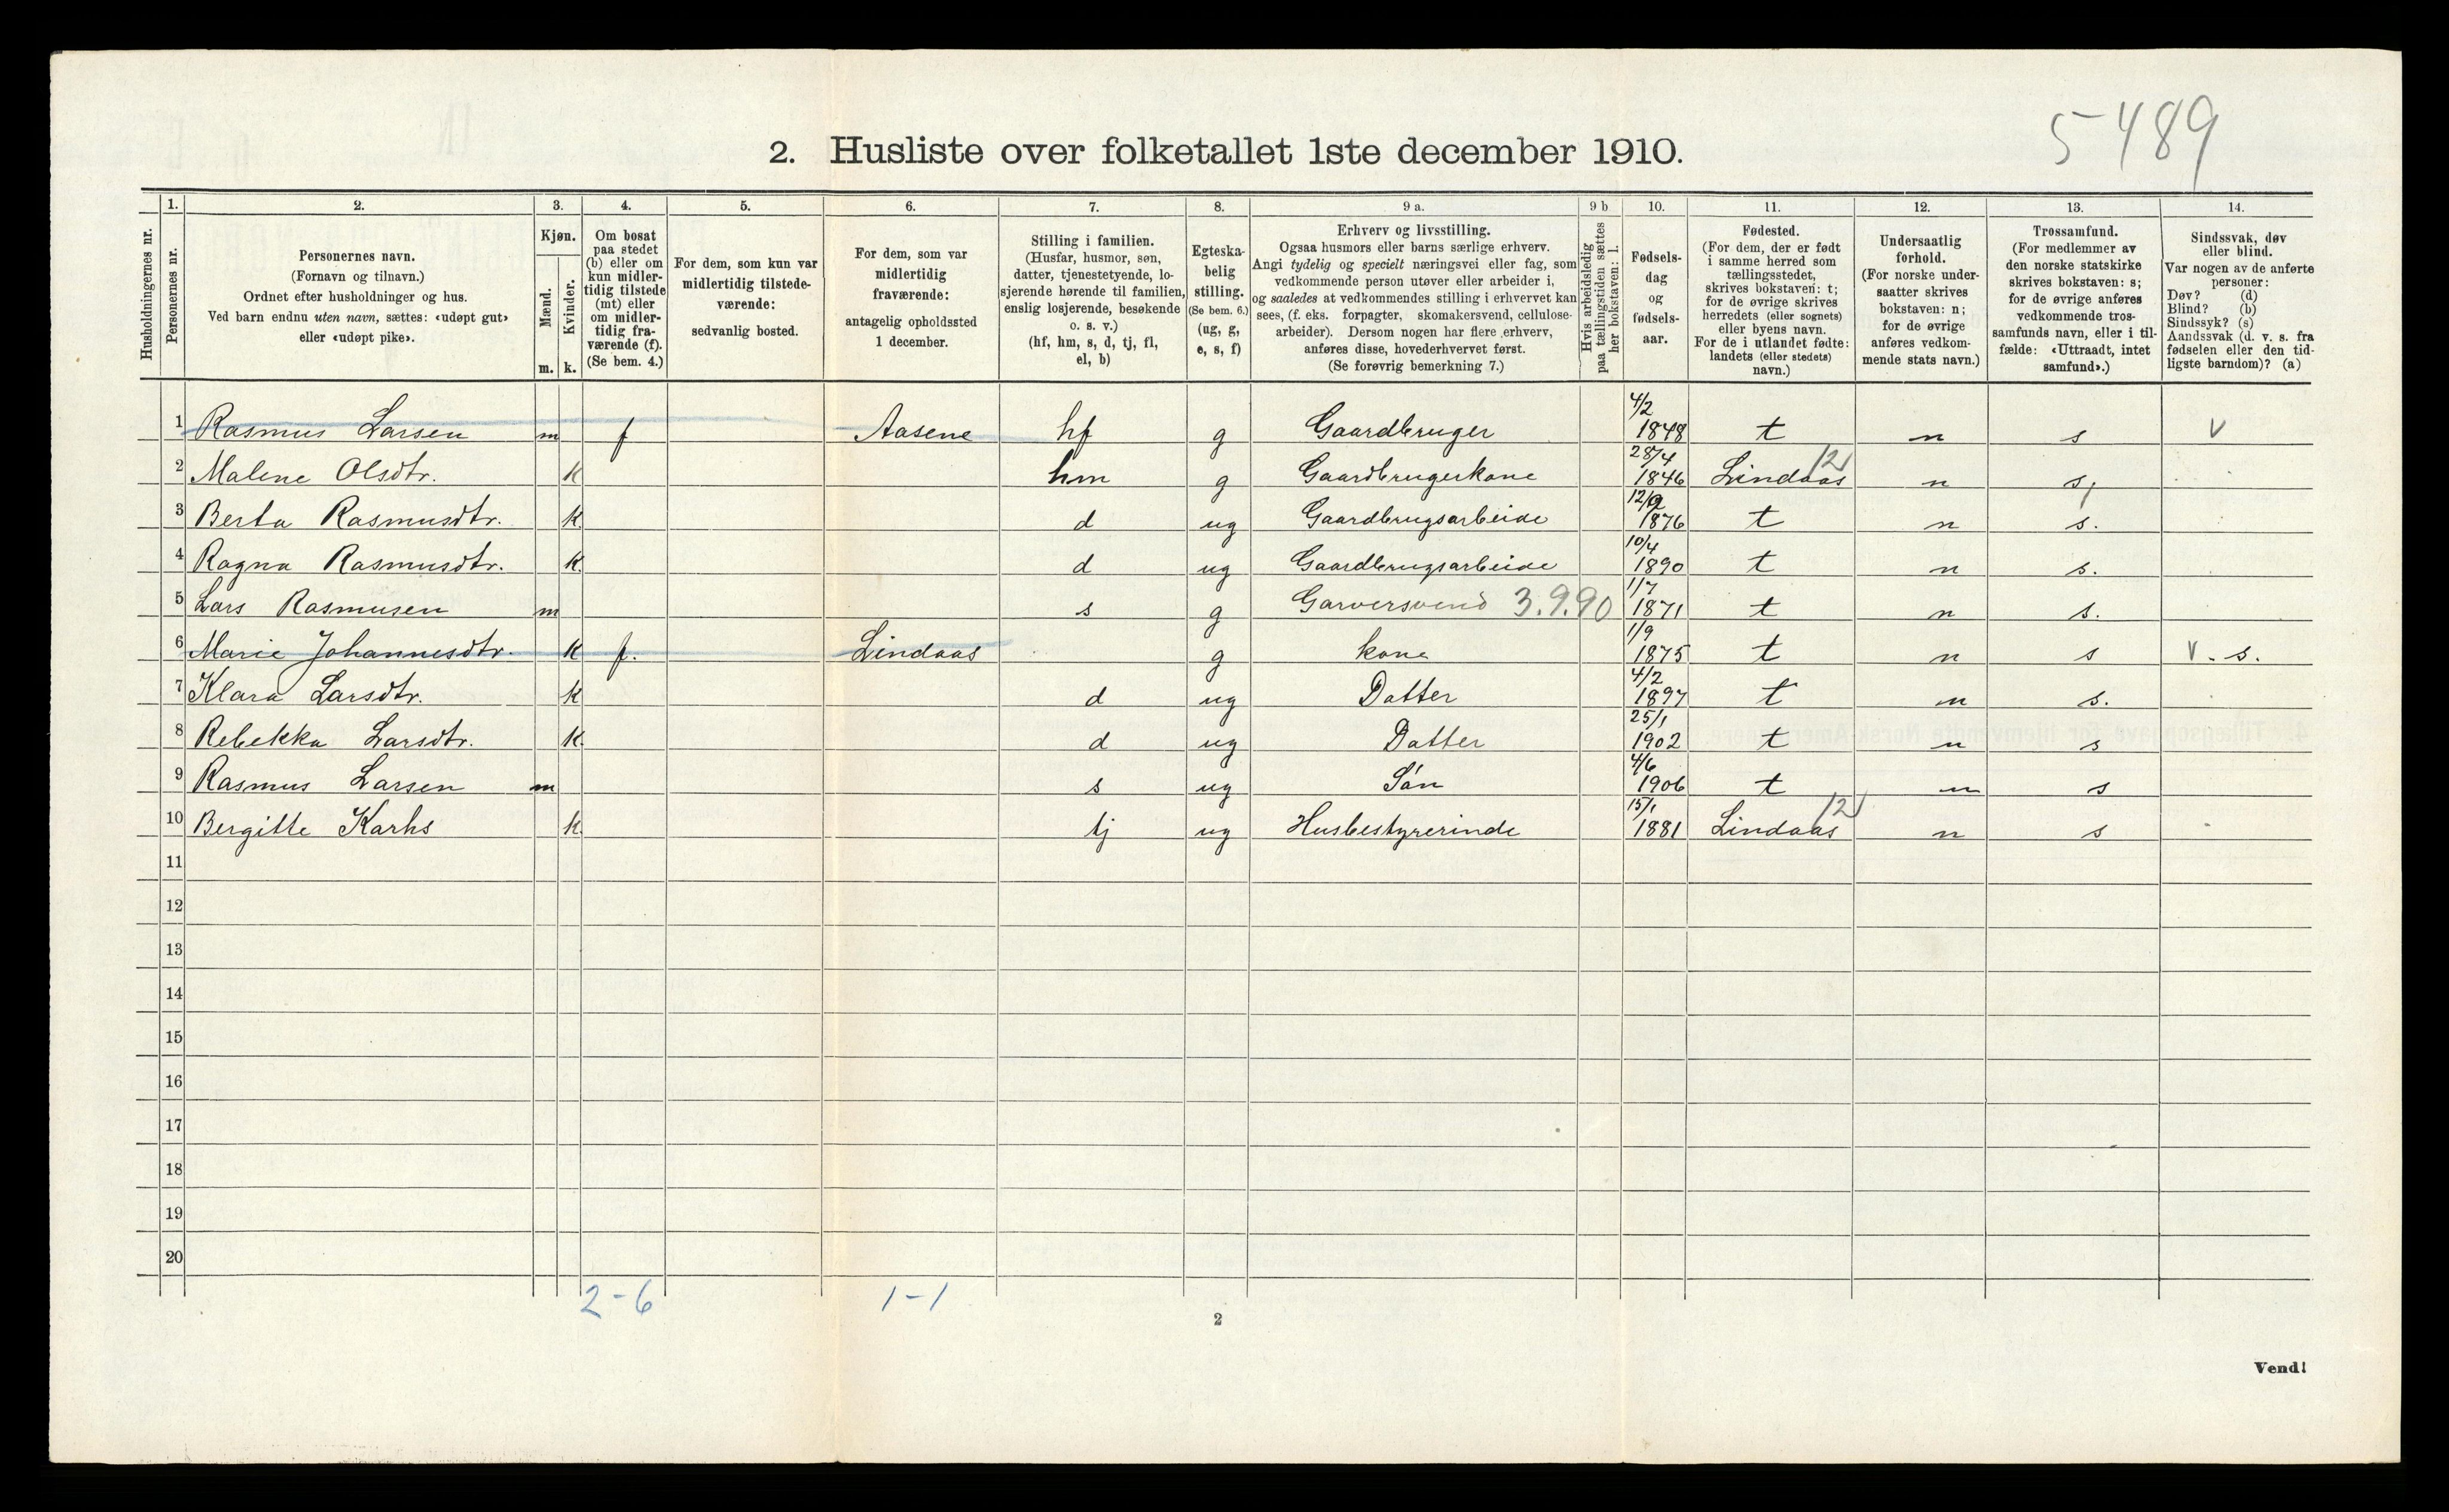 5-489
2. Husliste over folketallet 1ste december 1910.
Husholdningernes nr.
1. Personernes nr.
2. Personernes navn.
(Fornavn og tilnavn.)
Ordnet efter husholdninger og hus.
Ved barn endnu uten navn, sættes: «udøpt gut»
eller «udøpt pike».
3. Kjøn.
Mænd. Kvinder.
m. k.
4. Om bosat
paa stedet
(b) eller om
kun midler-
tidig tilstede
(mt) eller
om midler-
tidig fra-
værende (f).
(Se bem. 4.)
5. For dem, som kun var
midlertidig tilstede-
værende:
sedvanlig bosted.
6. For dem, som var
midlertidig
fraværende:
antagelig opholdssted
1 december.
7. Stilling i familien.
(Husfar, husmor, søn,
datter, tjenestetyende, lo-
sjerende hørende til familien,
enslig losjerende, besøkende
o. s. v.)
(hf, hm, s, d, tj, fl,
el, b)
8. Egteska-
belig
stilling.
(Se bem. 6.)
(ug, g,
e, s, f)
9 a. Erhverv og livsstilling.
Ogsaa husmors eller barns særlige erhverv.
Angi tydelig og specielt næringsvei eller fag, som
vedkommende person utøver eller arbeider i,
og saaledes at vedkommendes stilling i erhvervet kan
sees, (f. eks. forpagter, skomakersvend, cellulose-
arbeider). Dersom nogen har flere erhverv,
anføres disse, hovederhvervet først.
(Se forøvrig bemerkning 7.)
9 b Hvis arbeidsledig
paa tællingstiden sættes
her bokstaven: l.
10. Fødsels-
dag
og
fødsels-
aar.
11. Fødested.
(For dem, der er født
i samme herred som
tællingsstedet,
skrives bokstaven: t;
for de øvrige skrives
herredets (eller sognets)
eller byens navn.
For de i utlandet fødte:
landets (eller stedets)
navn.)
12. Undersaatlig
forhold.
(For norske under-
saatter skrives
bokstaven: n;
for de øvrige
anføres vedkom-
mende stats navn.)
13. Trossamfund.
(For medlemmer av
den norske statskirke
skrives bokstaven: s;
for de øvrige anføres
vedkommende tros-
samfunds navn, eller i til-
fælde: «Uttraadt, intet
samfund».)
14. Sindssvak, døv
eller blind.
Var nogen av de anførte
personer:
Døv? (d)
Blind? (b)
Sindssyk? (s)
Aandssvak (d. v. s. fra
fødselen eller den tid-
ligste barndom)? (a)
1 Rasmus Larsen m f Aasene hf g Gaardbruger 4/2 1848 t n s v
2 Malene Olsdtr. k hm g Gaardbrugerkone 28/4 1846 Lindaas 12 n s,
3 Berta Rasmusdtr. k d ug Gaardbrugsarbeide 12/9 1876 t n s.
4 Ragna Rasmusdtr. k. d ug Gaardbrugsarbeide 10/4 1890 t n s.
5 Lars Rasmusen m s g Garversvend 3.9.90 1/7 1871 t n s.
6 Marie Johannesdtr. k f. Lindaas g kone 1/9 1875 t n s v. s.
7 Klara Larsdtr. k d ug Datter 4/2 1897 t n s.
8 Rebekka Larsdtr. k. d ug Datter 25/1 1902 t n s
9 Rasmus Larsen m s ug Søn 4/6 1906 t n s
10 Bergitte Karhs k tj ug Husbestyrerinde 15/1 1881 Lindaas 12 n s
11
12
13
14
15
16
17
18
19
20
2-6 1-1
2
Vend!